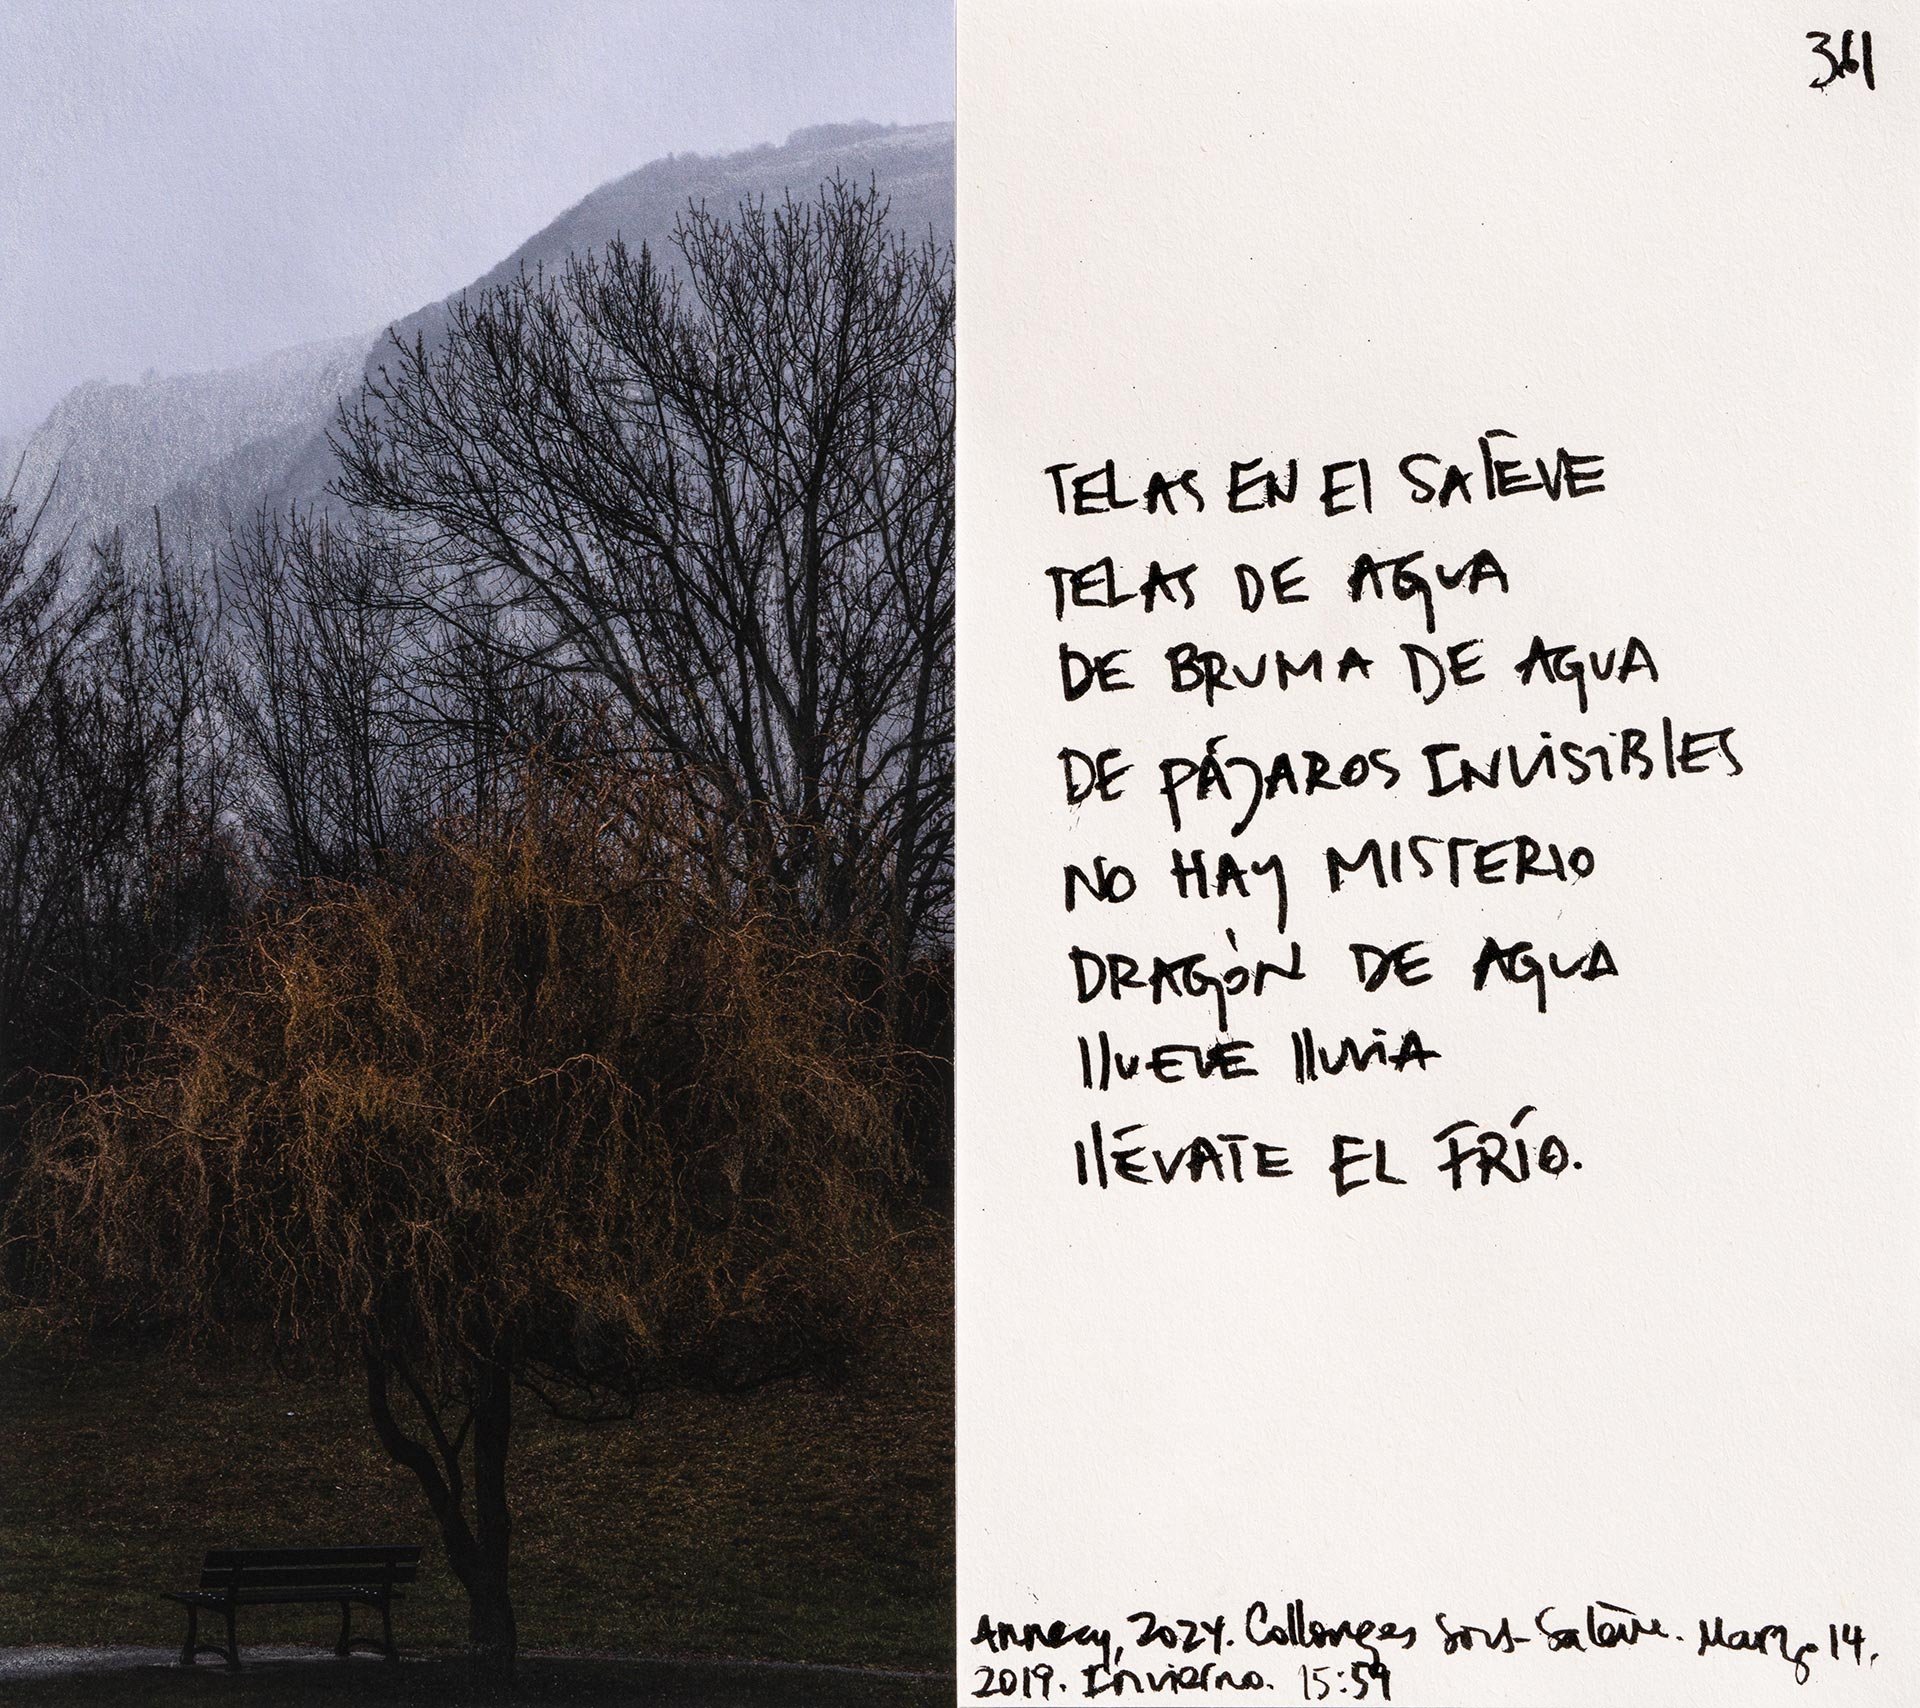 361
TELAS EN El SALÈVE
TELAS DE AGUA
DE BRUMA DE AGUA
DE PÁJAROS INVISIBLES
NO HAY MISTERIO
DRAGÓN DE AGUA
llUEVE lluviA
llÉVATE EL FRÍO.
Annecy, 2024. Collonges Sous-Salève. Marzo 14,
2019. Invierno. 15:59